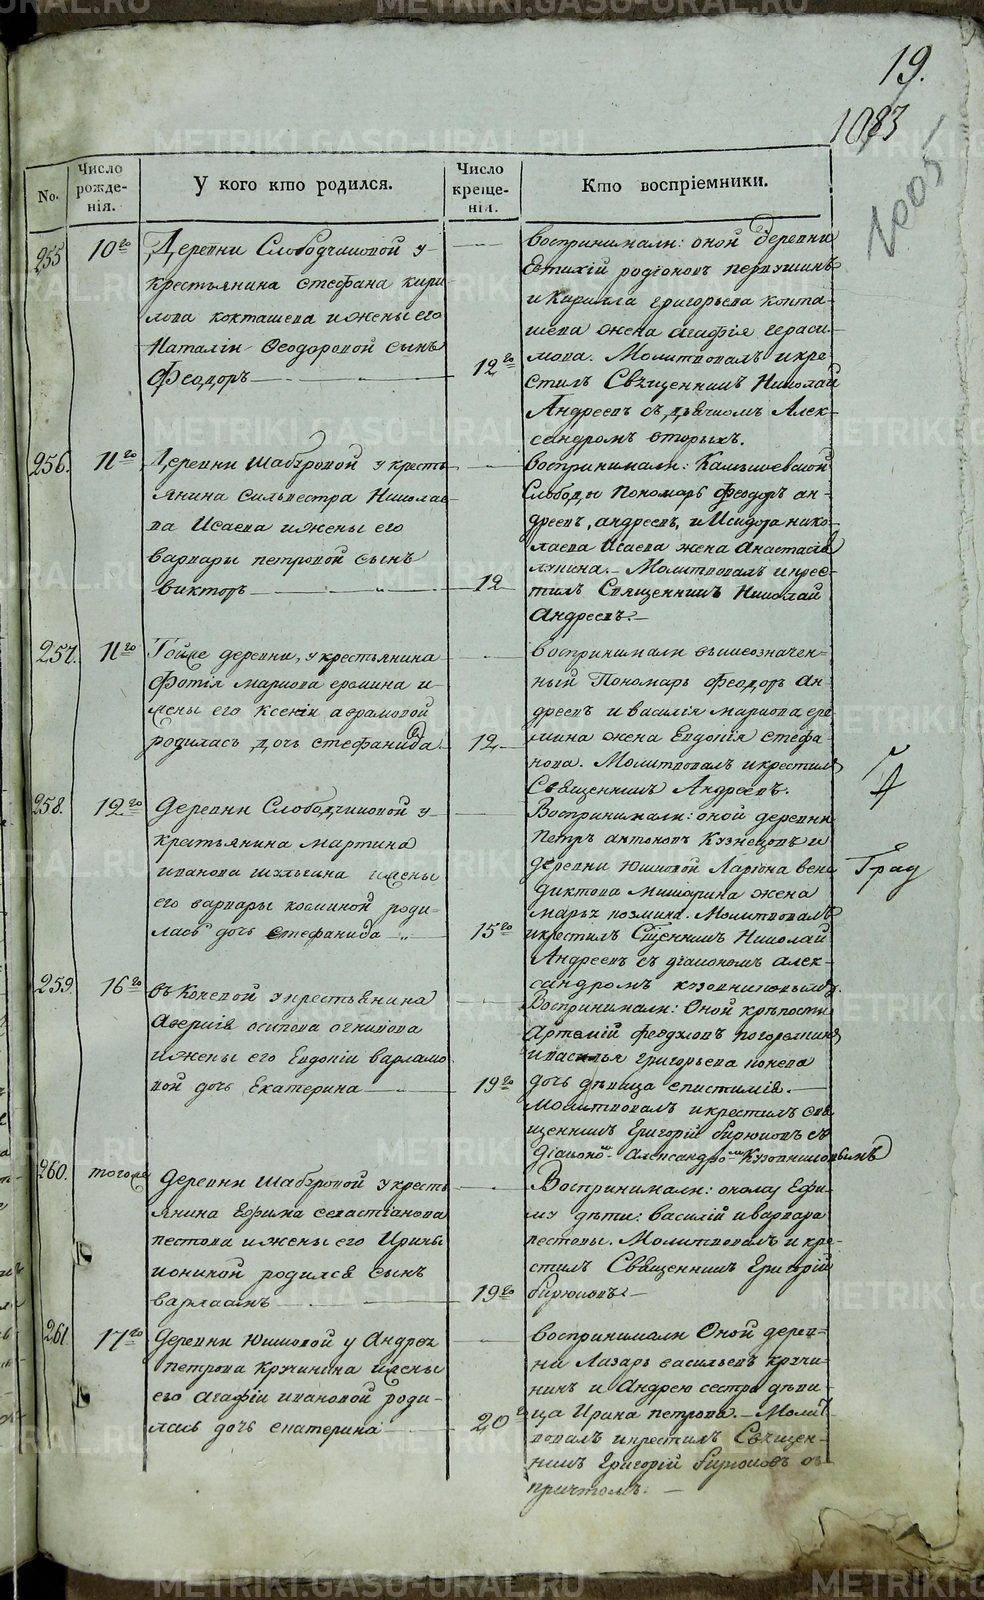 19.
1083
1005
No.
Число рожде-
нія.
У кого кто родился.
Число креще-
нія.
Кто воспріемники.
255
10го
Деревни Слободчиковой у
крестьянина Стефана Кири
лова Кокташева и жены его
Наталіи Феодоровой сынъ
Феодоръ
12го
Воспринимали: оной деревни
Евтихій Родіоновъ Первушинъ
и Кирилла Григорьева Кокта-
шева жена Агафія Гераси-
мова. Молитвовалъ и кре-
стилъ Священникъ Николай
Андреевъ съ дьячкомъ Алек-
сандромъ Вторыхъ.
256.
11го
Деревни Шабуровой у кресть
янина Сильвестра Николае-
ва Исаева и жены его
Варвары Петровой сынъ
Викторъ
12
Воспринимали: Камышевской
Слободы Пономарь Феодоръ Ан-
дреевъ, Андреевъ, и Исидора Нико-
лаева Исаева жена Анастасія
Молитвовалъ и крес-
тилъ Священникъ Николай
Андреевъ.
257.
11го
Тойже деревни, у крестьянина
Фотія Маркова Еремина и
жены его Ксеніи Аврамовой
родилась дочь Стефанида
12
Воспринимали вышеозначен-
ный Пономарь Феодоръ Ан-
дреевъ и Василія Маркова Ере-
мина жена Евдокія Стефа-
нова. Молитвовалъ и крестилъ
Священникъ Андреевъ.
258.
12го
Деревни Слободчиковой у
крестьянина Мартина
Иванова Шульгина и жены
его Варвары Косминой роди-
лась дочь Стефанида
15го
Воспринимали: оной деревни
Петръ Антоновъ Кузнецовъ и
деревни Юшковой Ларіона Вене
диктова Мишарина жена
Марья Козмина. Молитвовалъ
и крестилъ Сщенникъ Николай
Андреевъ съ діакономъ Алек-
сандромъ Кузовниковымъ.
Град
259.
16го
Въ Коневой у крестьянина
Аверкія Осипова Огнивова
и жены его Евдокіи Варламо
вой дочь Екатерина
19го
Воспринимали: Оной крѣпости
Артемій Погорелкинъ
и Василья Григорьева Конева
дочь дѣвица Епистимія.
Молитвовалъ и крестилъ Свя
щенникъ Григорій Бирюковъ съ
Діакономъ Александромъ Кузовниковымъ
260.
тогоже
Деревни Шабуровой у кресть
янина Ефима Севастіанова
Пестова и жены его Ирины
Іониной родился сынъ
Варлаамъ
19го
Воспринимали: оному Ефи-
му дѣти: Василій и Варвара
Пестовы. Молитвовалъ и кре-
стилъ Священникъ Григорій
Бирюковъ
261
17го
Деревни Юшковой у Андрея
Петрова Кручинина и жены
его Агафіи Ивановой роди-
лась дочь Екатерина
20го
Воспринимали Оной дерев-
ни Лазарь Васильевъ Кручи-
нинъ и Андрею сестра дѣви-
ца Ирина Петрова. Молит
вовалъ и крестилъ Священ-
никъ Григорій Бирюковъ съ
причтомъ.
METRIKI.GASO-URAL.RU